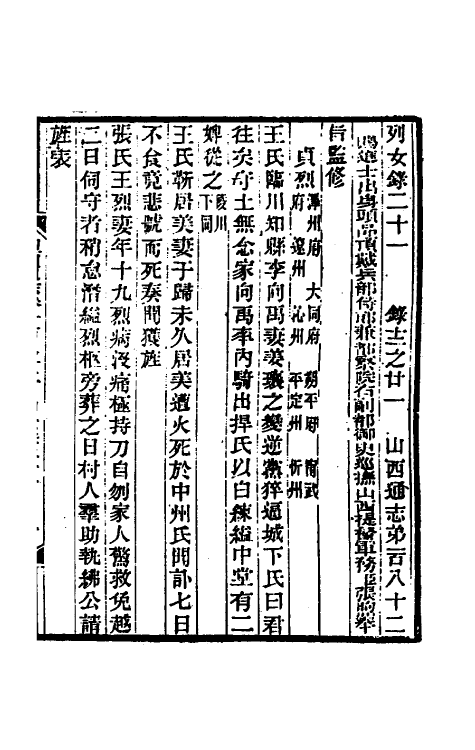 列女錄二十一　錄士之廿一　山西通志弟一百八十二
賜進士出身頭品頂戴兵部侍郎兼都察院右副都御史巡撫山西提督軍務臣張煦奉
旨監修
貞烈　潞州府　大同府　朔平府　甯武府　遼州　沁州　平定州　忻州
王氏臨川知縣李向禹妻姜瓖之變逆黨猝逼城下氏曰君
往矣守土無念家向禹率內騎出捍氏以白練縊中堂有二
婢從之陵川下同
王氏靳居美妻于歸未久居美遭火死於中州氏聞訃七日
不食竟悲號而死奏聞獲旌
張氏王烈妻年十九烈病歿痛極持刀自刎家人驚救免越
二日伺守者稍怠潛縊烈柩旁葬之日村人羣助執紼公請
旌表